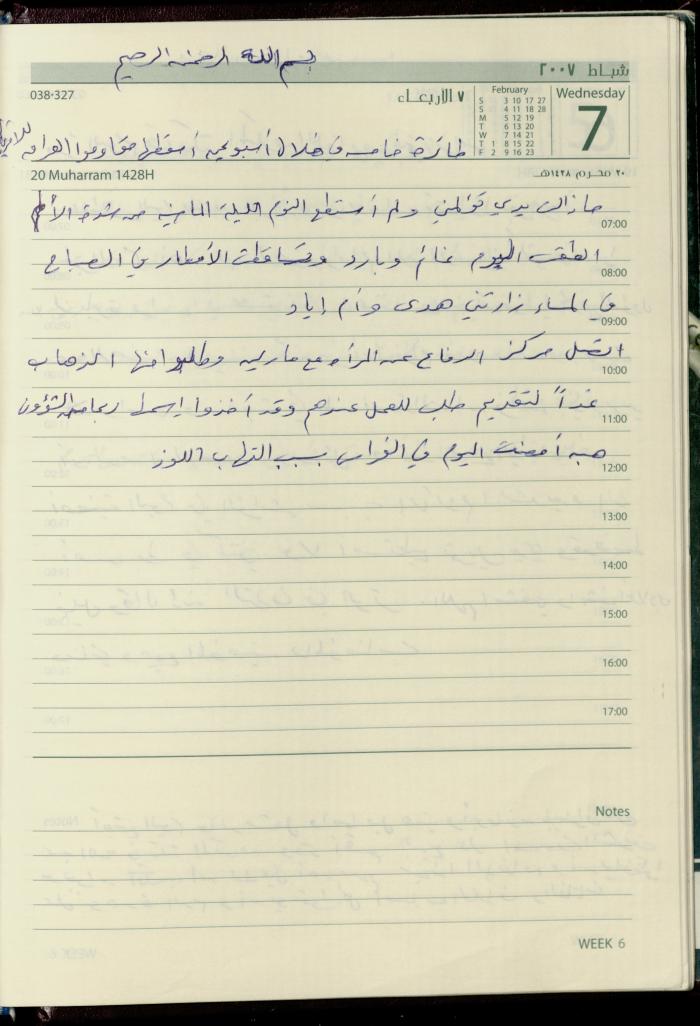 بسم الله الرحمن الرحيم
شباط ٢٠٠٧
038-327
٧ الأربعاء
February
Wednesday
S 3 10 17 27
S 4 11 18 28
M 5 12 19
T 6 13 20
W 7 14 21
T 1 8 15 22
F 2 9 16 23
7
طائرة خامسة خلال أسبوعين أسقطها مقاوموا العراق
20 Muharram 1428H
٢٠ محرم ١٤٢٨هـ
مازالت يدي تؤلمني ولم أستطع النوم الليلة الماضية من شدة الألم
07:00
الطقس اليوم غائم وبارد وتساقطت الأمطار في الصباح
08:00
في المساء زارتني هدى وأم إياد
09:00
اتصل مركز الدفاع عن المرأة مع مارية وطلبوا منها الذهاب
10:00
غداً لتقديم طلب للعمل عندهم وقد أخذوا اسمها من الشؤون
11:00
هبه أمضت اليوم في الفراش بسبب التهاب اللوز
12:00
13:00
14:00
15:00
16:00
17:00
Notes
WEEK 6